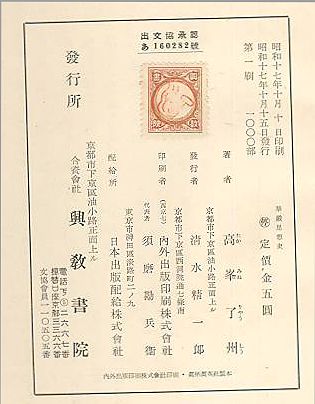 出文協承認
あ160282號
昭和十七年十月十日印刷
昭和十七年十月十五日發行
第一刷 一〇〇〇部
華嚴思想史
定價金五圓
著者 高峯了州
たか みね りやう しう
京都市下京區油小路正面上ル
發行者 清水精一郎
京都市下京區西洞院通七條南
印刷者 內外出版印刷株式會社
代表者 須磨勘兵衞
東京市神田區淡路町二ノ九
配給所 日本出版配給株式會社
京都市下京區油小路正面上ル
發行所 合資會社 興敎書院
電話下⑤二六八七番
振替京都三三六六番
文協會員一一〇五〇五番